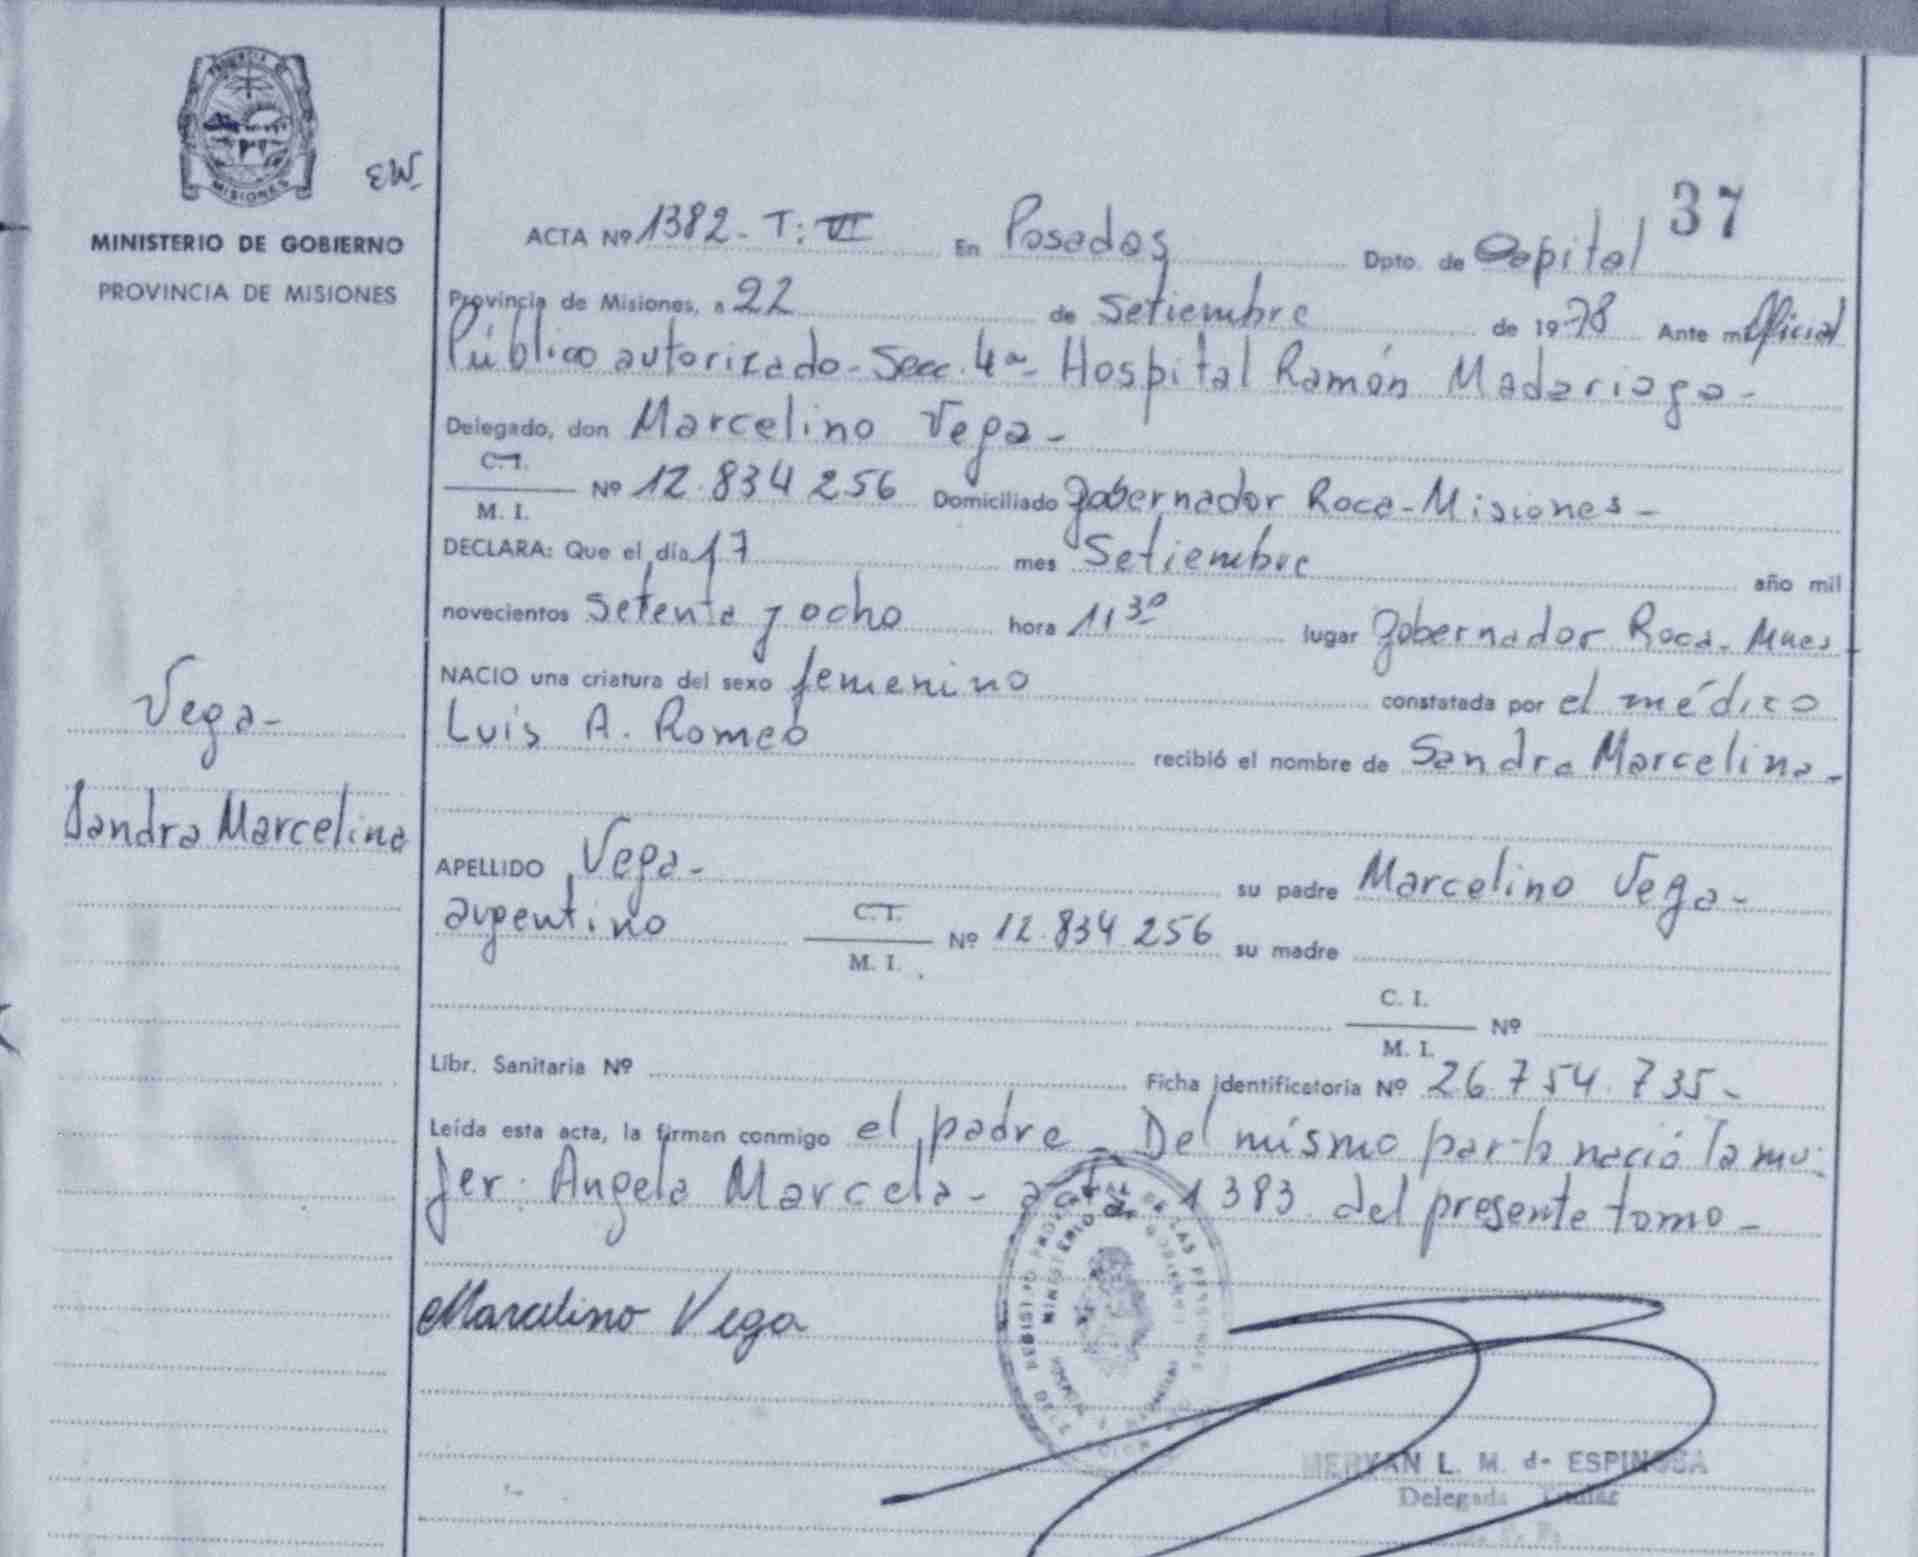 PROVINCIA DE
MISIONES
EW
MINISTERIO DE GOBIERNO
PROVINCIA DE MISIONES
Vega-
Sandra Marcelina
37
ACTA Nº 1382 - T: VI En Posadas Dpto. de Capital
Provincia de Misiones, a 22 de Setiembre de 1978 Ante mi Oficial
Público autorizado - Secc. 4ª - Hospital Ramón Madariaga -
Delegado, don Marcelino Vega -
C.I.
Nº 12.834.256 Domiciliado Gobernador Roca - Misiones -
M. I.
DECLARA: Que el día 17 mes Setiembre año mil
novecientos setenta y ocho hora 11 30 lugar Gobernador Roca - Mnes -
NACIO una criatura del sexo femenino constatada por el médico
Luis A. Romeo recibió el nombre de Sandra Marcelina -
APELLIDO Vega - su padre Marcelino Vega -
argentino C.I. Nº 12.834.256 su madre
M. I.
C. I.
Nº
M. I.
Libr. Sanitaria Nº Ficha Identificatoria Nº 26.754.735 -
Leída esta acta, la firman conmigo el padre - Del mismo parto nació la mu-
jer: Angela Marcela - acta 1383 del presente tomo -
Marcelino Vega
MINISTERIO DE GOBIERNO
DE LAS PERSONAS
MERYAN L. M. de ESPINOSA
Delegada Titular